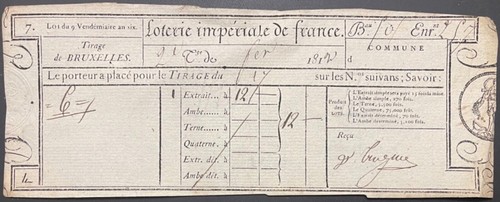 7. Loi du 9 Vendémiaire an six. Loterie impériale de france. Bau 50
Tirage de BRUXELLES. COMMUNE
de fer 1812 d
Le porteur a placé pour le TIRAGE du 17 sur les Nos. suivans; Savoir:
=67= 1 Extrait... à 12
Ambe... à
Terne... à 12
Quaterne. à
Extr. dét. à
Ambe dét. à
Produit des lots.
L'Extrait simple sera payé 15 fois la mise
L'Ambe simple, 270 fois.
Le Terne, 5,500 fois.
Le Quaterne, 75,000 fois.
L'Extrait déterminé, 70 fois.
L'Ambe déterminé, 5,100 fois.
Reçu